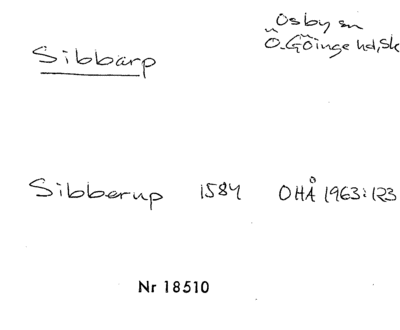 Sibbarp
Osby sn
Ö. Göinge hd, Sk
Sibberup 1584 OHÅ 1963:123
Nr 18510